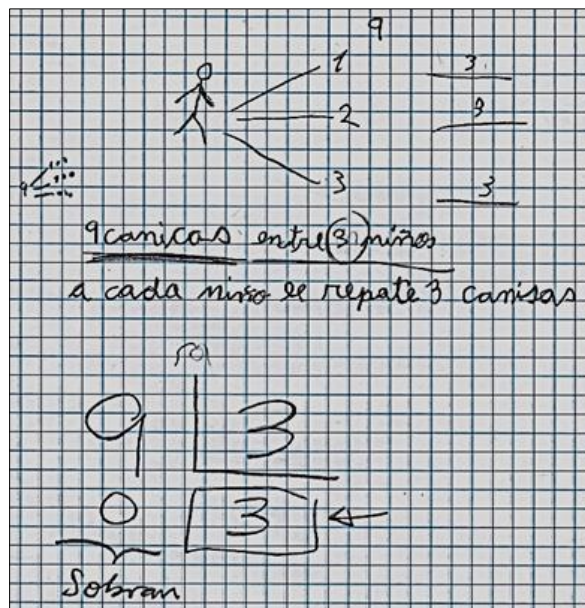 9
1 3
2 3
3 3
9
9 canicas entre 3 niños
a cada niño le repate 3 canisas
9 3
0 3
Sobran